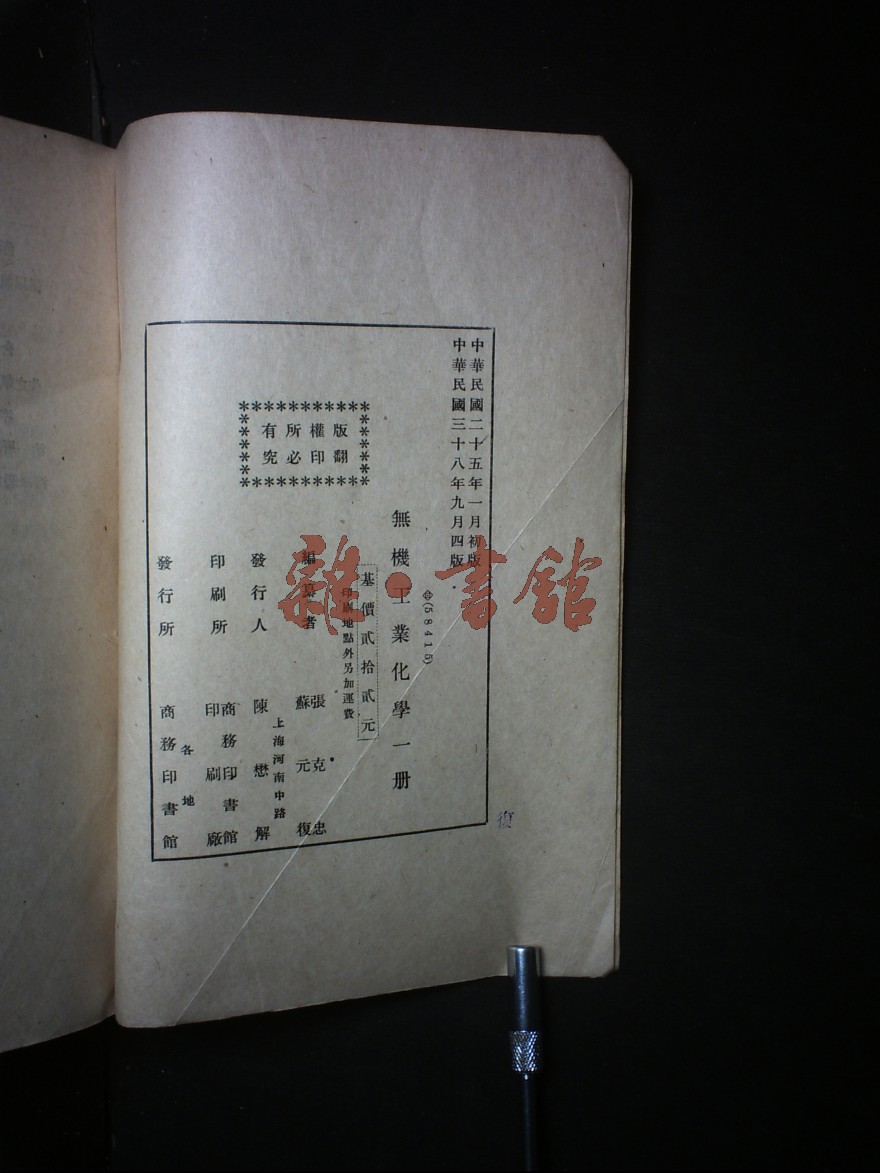 中華民國二十五年一月初版
中華民國三十八年九月四版
(58415)
無機工業化學一册
基價貳拾貳元
印刷地點外另加運費
版權所有
翻印必究
編纂者 張克忠 蘇元復
發行人 陳懋解
上海河南中路
印刷所 商務印書館印刷廠
發行所 各地 商務印書館
復
雜·書館